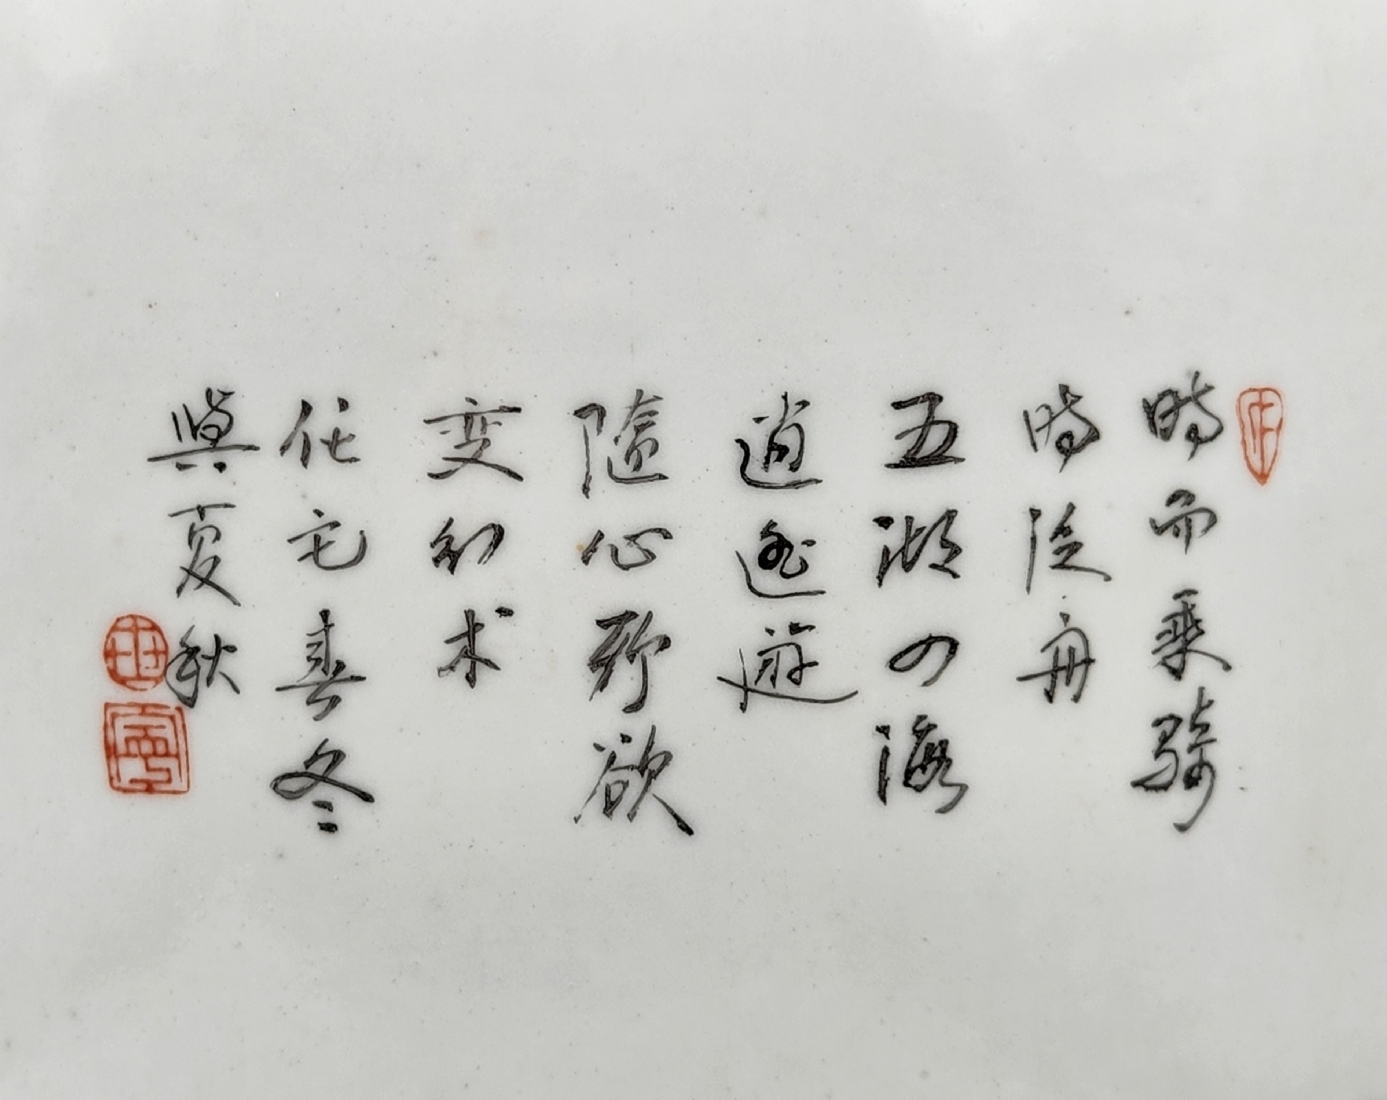 時而乘騎
時從舟
五湖四海
逍遙遊
隨心所欲
变幻术
任它春冬
與夏秋